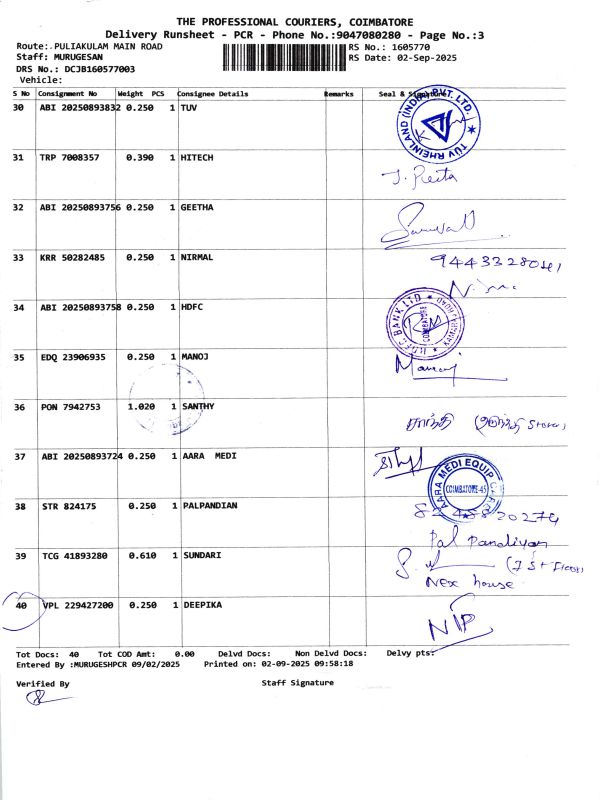 THE PROFESSIONAL COURIERS, COIMBATORE
Delivery Runsheet - PCR - Phone No.:9047080280 - Page No.:3
Route: PULIAKULAM MAIN ROAD RS No.: 1605770
Staff: MURUGESAN RS Date: 02-Sep-2025
DRS No.: DCJB160577003
Vehicle:
S No Consignment No Weight PCS Consignee Details Remarks Seal & Signature
30 ABI 20250893832 0.250 1 TUV
TÜV RHEINLAND (INDIA) PVT. LTD.
31 TRP 7008357 0.390 1 HITECH
32 ABI 20250893756 0.250 1 GEETHA
33 KRR 50282485 0.250 1 NIRMAL
34 ABI 20250893758 0.250 1 HDFC
HDFC BANK LTD COIMBATORE
35 EDQ 23906935 0.250 1 MANOJ
36 PON 7942753 1.020 1 SANTHY
சாந்தி
37 ABI 20250893724 0.250 1 AARA MEDI
AARA MEDI EQUIP COIMBATORE-45
38 STR 824175 0.250 1 PALPANDIAN
Pal Pandiyan
39 TCG 41893280 0.610 1 SUNDARI
Nex house
40 VPL 229427200 0.250 1 DEEPIKA
NIP
Tot Docs: 40 Tot COD Amt: 0.00 Delvd Docs: Non Delvd Docs: Delvy pts:
Entered By :MURUGESHPCR 09/02/2025 Printed on: 02-09-2025 09:58:18
Verified By Staff Signature